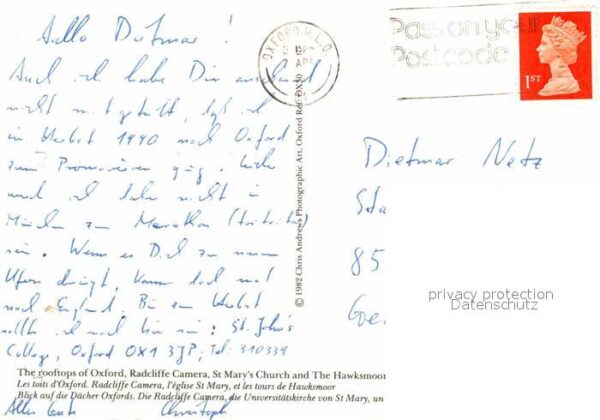 Hallo Dietmar!
Auch ich habe Dir anscheinend
nicht mitgeteilt, daß ich
im Herbst 1990 nach Oxford
zum Promovieren ging.
auch ich habe nicht in
München zum Marathon
sein. Wenn es Dich zu neuen
Ufern drängt, komm doch mal
nach England. Bis zum Herbst
sollte ich noch hier sein: St. John's
College, Oxford OX1 3JP; Tel: 310339
Alles Gute Christoph
OXFORD M.L.O
APR
Pass on your
Postcode
1ST
Dietmar Netz
Sta
85
Goe
privacy protection
Datenschutz
© 1982 Chris Andrews Photographic Art, Oxford Ref: OX50
The rooftops of Oxford, Radcliffe Camera, St Mary's Church and The Hawksmoor
Les toits d'Oxford. Radcliffe Camera, l'église St Mary, et les tours de Hawksmoor
Blick auf die Dächer Oxfords. Die Radcliffe Camera, die Universitätskirche von St Mary, un